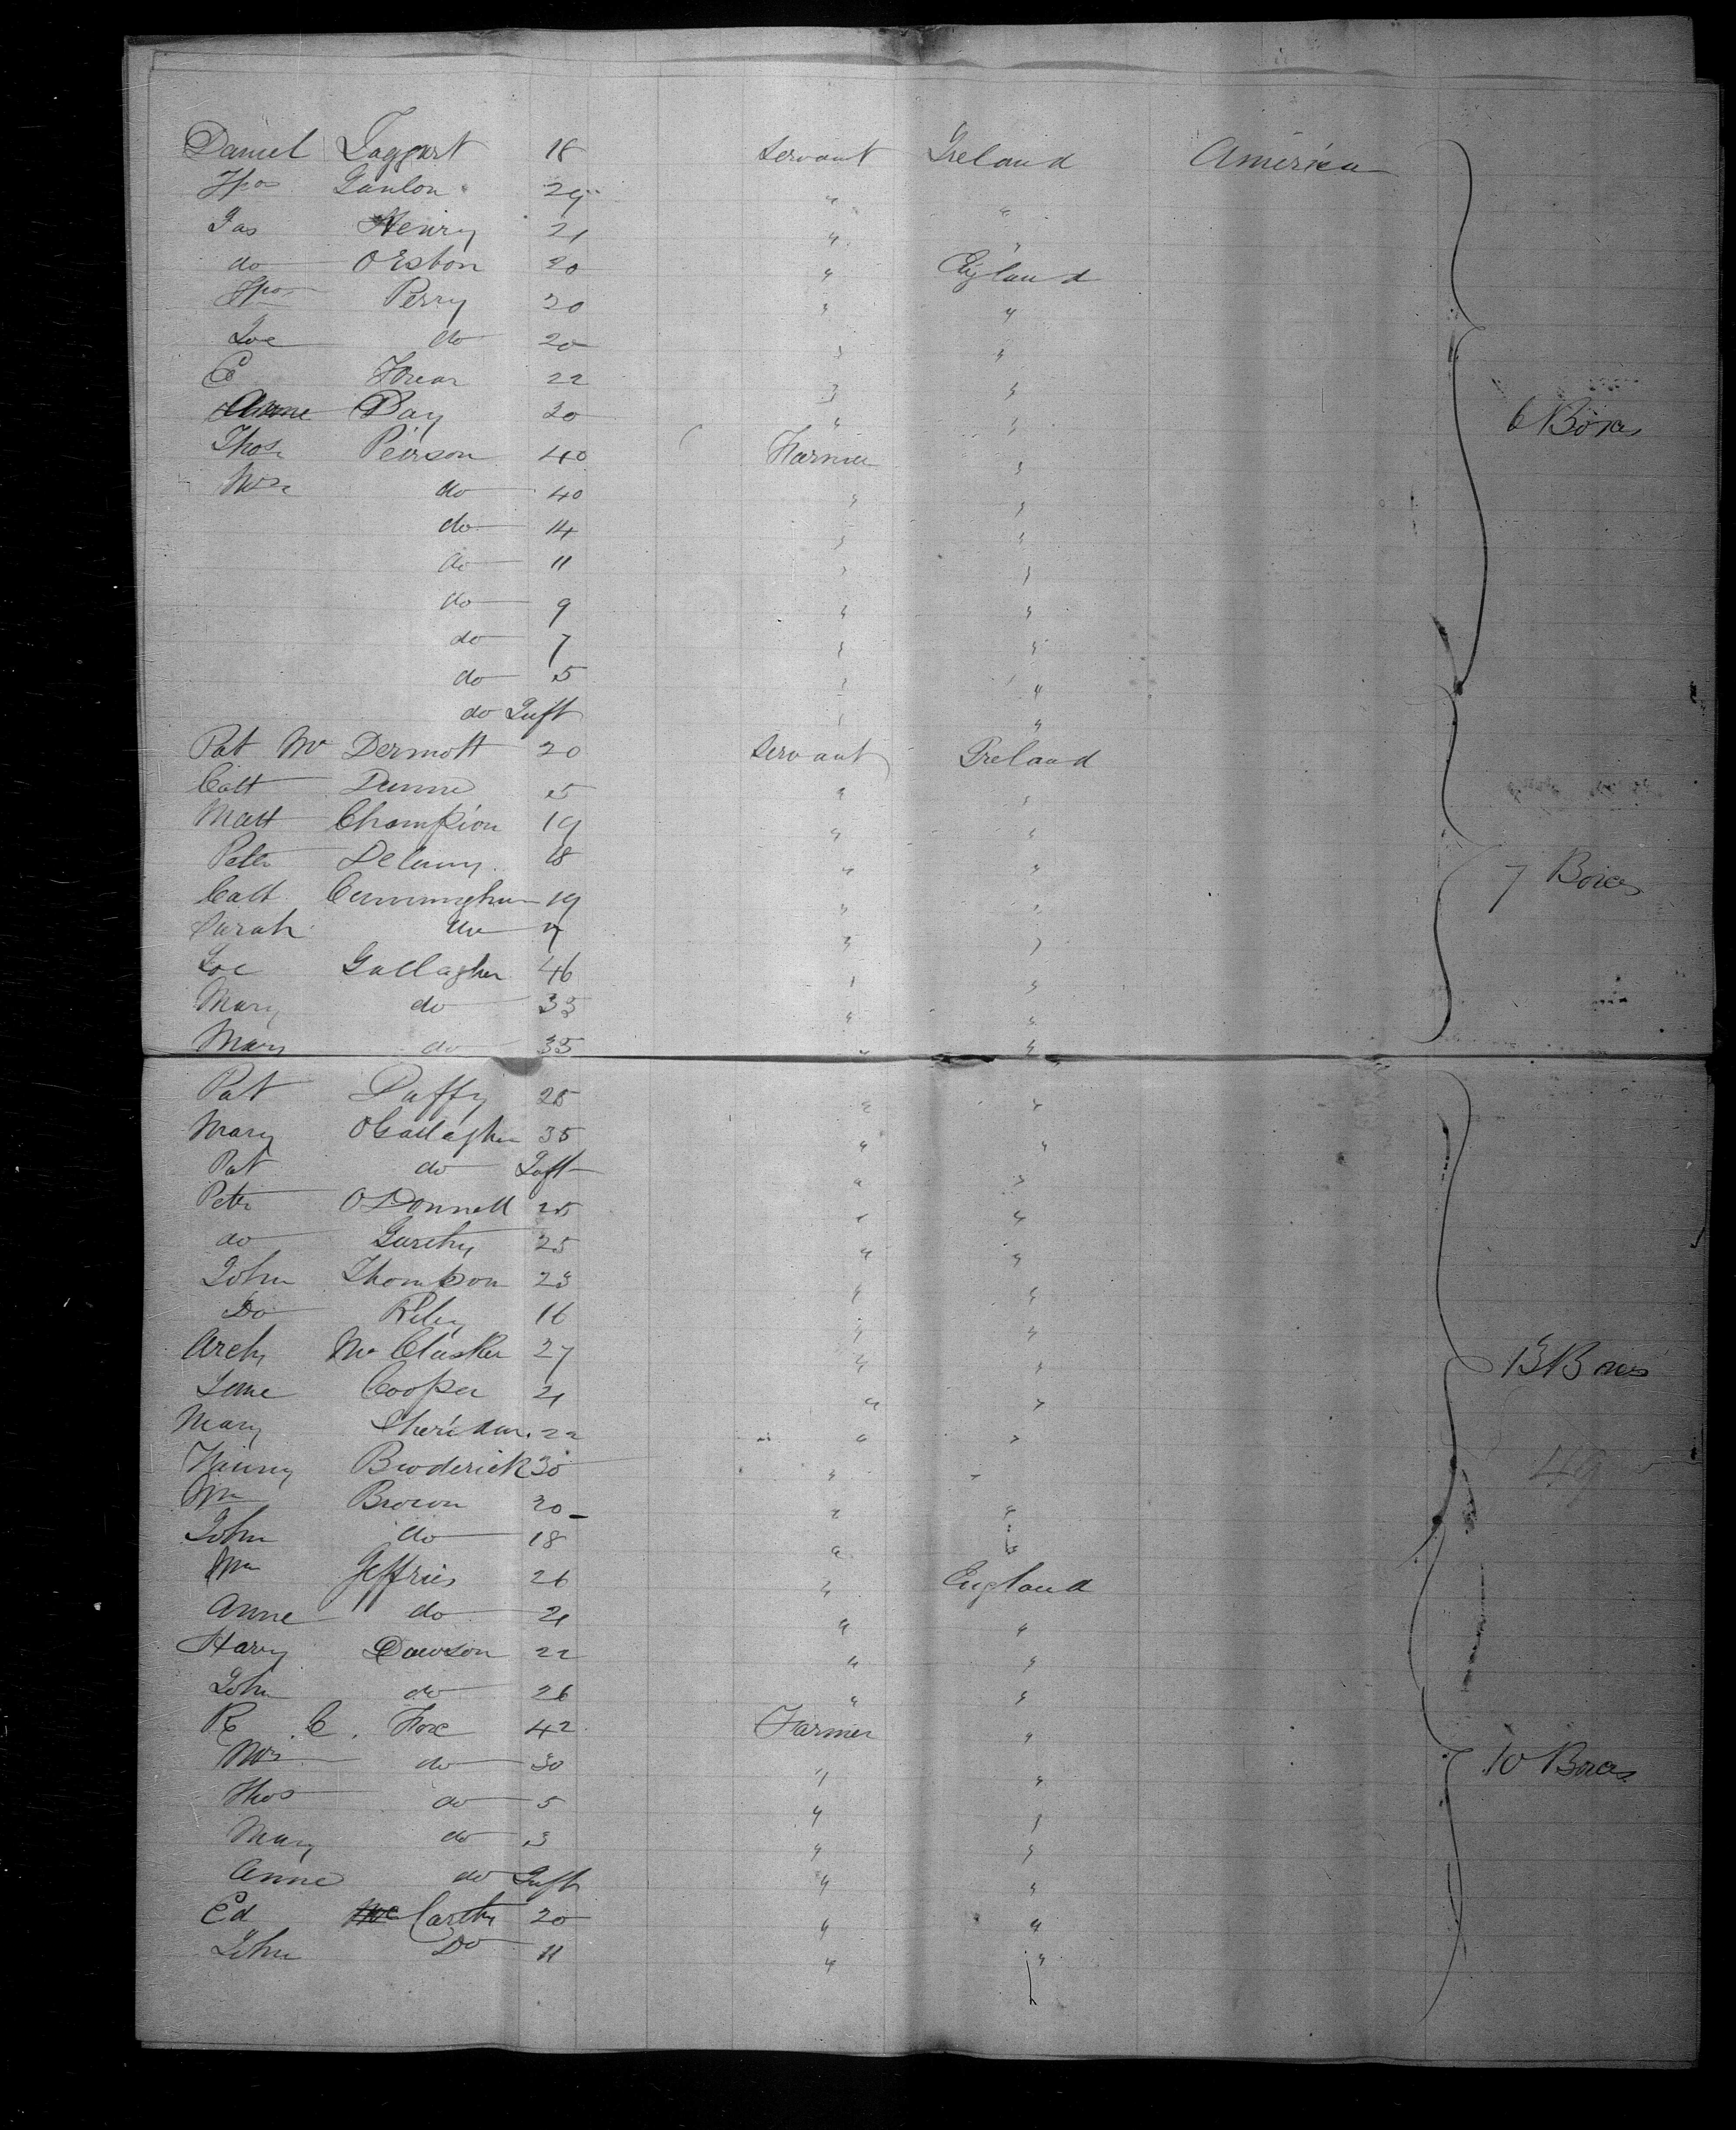 Daniel Taggart 18 Servant Ireland America
Thos Ganlon 24 " "
Jas Henry 21 " "
do OEsbon 20 " England
Thos Perry 20 " "
Joe do 20 " "
E 22 " "
Anne Day 20 " "
Thos Peirson 40 Farmer " 6 Boxes
Mrs do 40 " "
do 14 " "
do 11 " "
do 9 " "
do 7 " "
do 5 " "
do Inft " "
Pat Mc Dermott 20 Servant Ireland
Cath Dunne 25 " "
Matt Champion 19 " "
Peter Delany 18 " "
Cath Cunningham 19 " " 7 Boxes
Sarah do " "
Joe Gallagher 46 " "
Mary do 33 " "
Mary do 35 " "
Pat Duffy 25 " "
Mary OGallagher 35 " "
Pat do Inft " "
Peter ODonnell 25 " "
do Garethy 25 " "
John Thompson 23 " "
Do Riley 16 " "
Arch Mc Clusker 27 " " 13 Boxes
Jane Cooper 21 " "
Mary Sheridan 22 " "
Broderick 30 " "
Wm Brown 20 " "
John do 18 " "
Wm Jeffries 26 " England
Anne do 21 " "
Harry Dawson 22 " "
John do 26 " "
R C. Fox 42 Farmer "
Mrs do 30 " " 10 Boxes
Thos do 5 " "
Mary do 3 " "
Anne do Inft " "
Ed Carthy 20 " "
John Do 11 " "